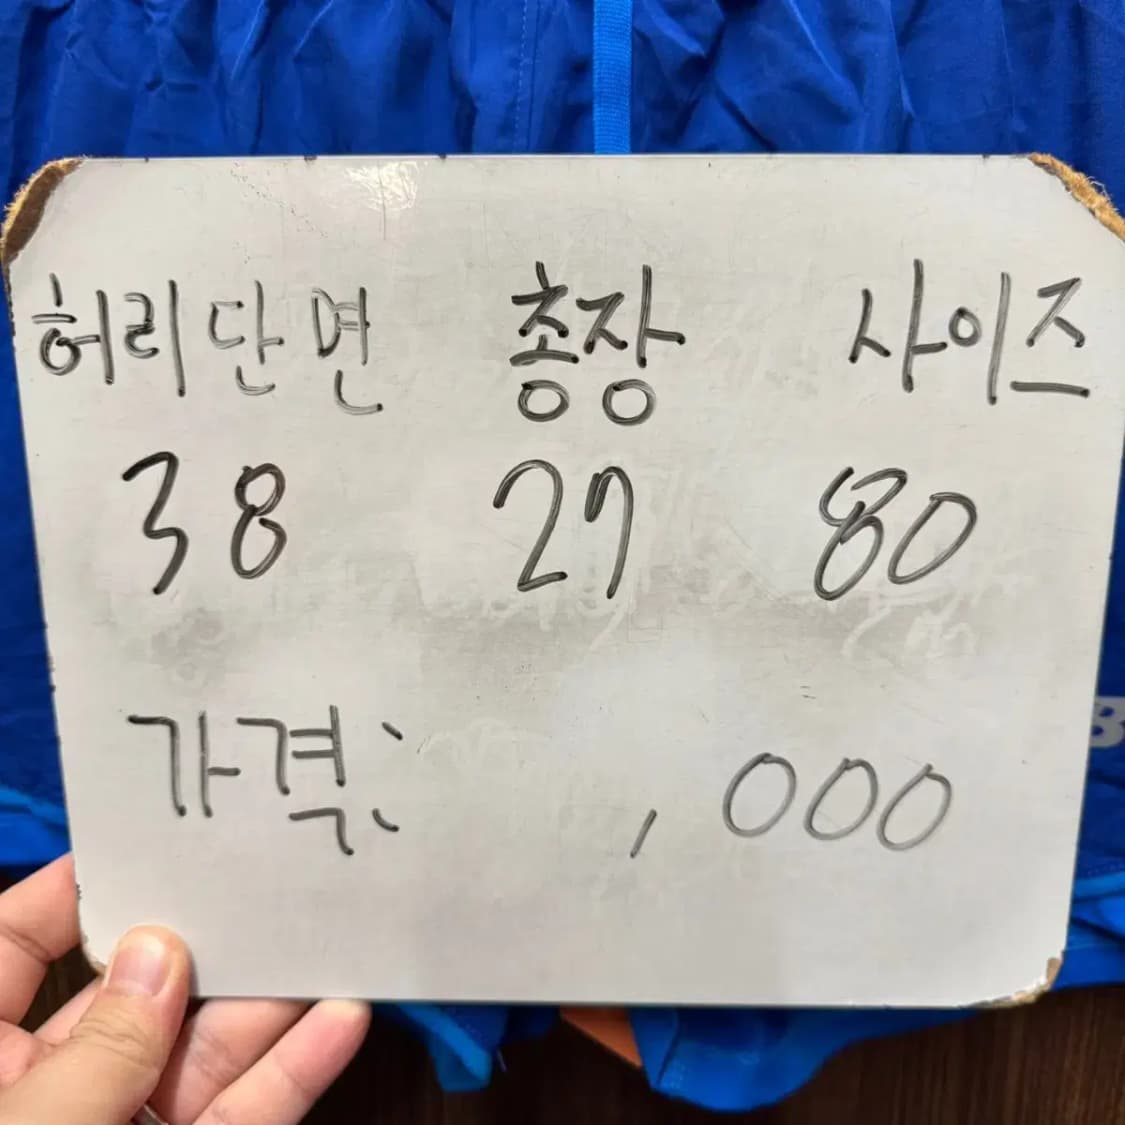 허리단면 총장 사이즈
38 27 80
가격: ,000
B